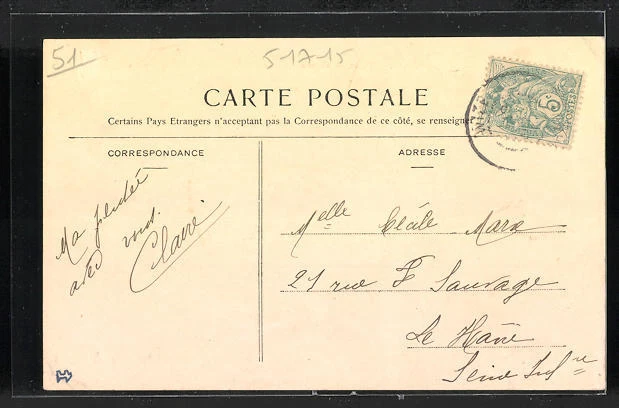 51.
51715
CARTE POSTALE
Certains Pays Etrangers n'acceptant pas la Correspondance de ce côté, se renseigne
5
POSTES
CORRESPONDANCE
ADRESSE
Ma pensée
avec vous.
Claire.
Melle Cécile Marx
21 rue F Sauvage
Le Havre
Seine Infre